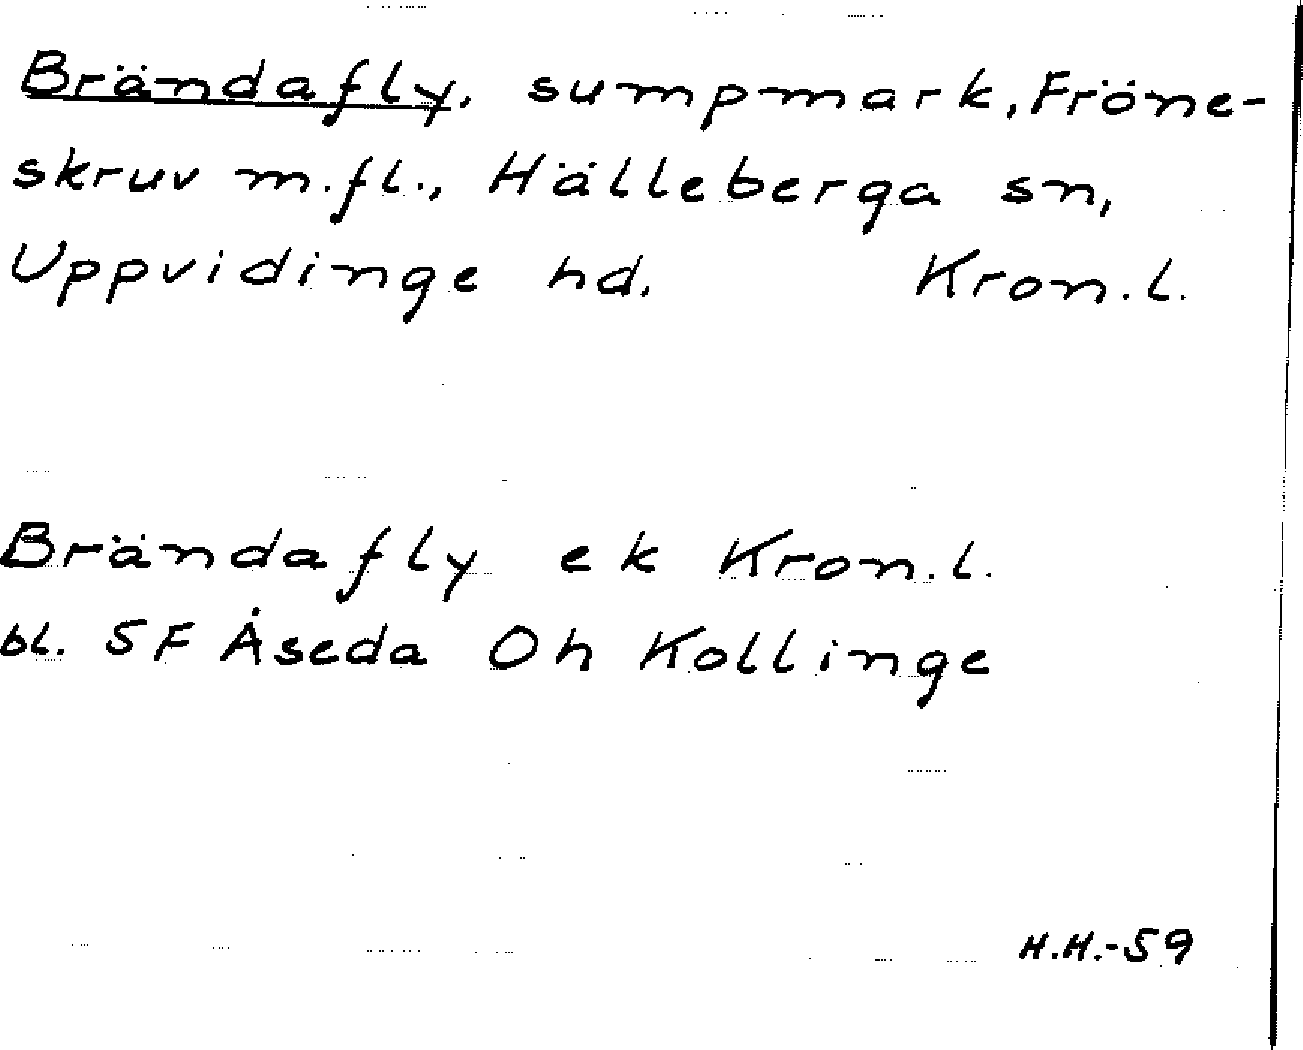 Brändafly, sumpmark, Fröne-
skruv m.fl., Hälleberga sn,
Uppvidinge hd. Kron.l.
Brändafly ek Kron.l.
bl. 5F Åseda Oh Kollinge
H.H.-59